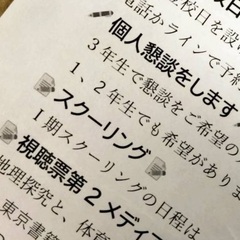 登校日を設
電話かラインで予約
個人懇談をします
3年生で懇談をご希望の
1、2年生でも希望があり
スクーリング
I期スクーリングの日程は
視聴票第2メディ
地理探究と、体育
東京書籍